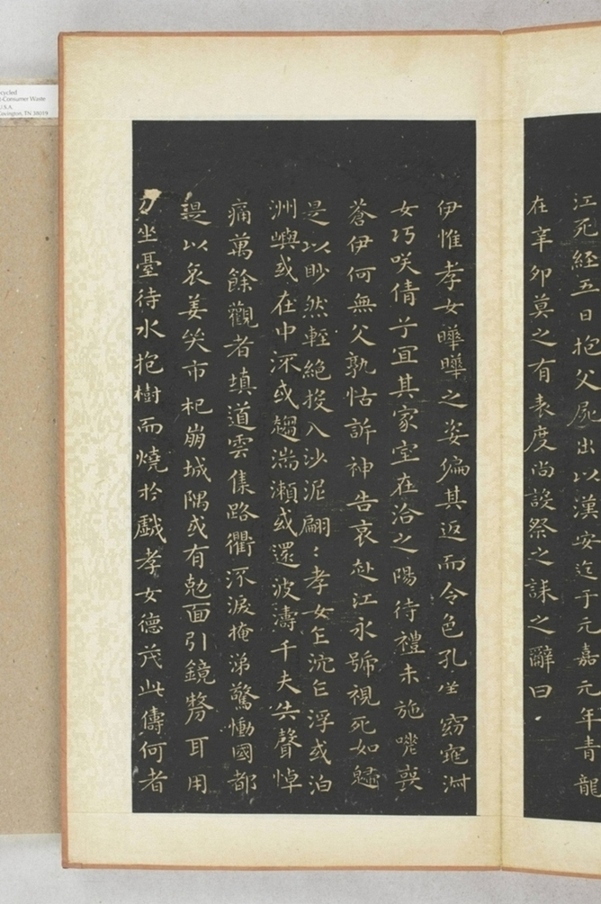 江死經五日抱父屍出以漢安迄于元嘉元年青龍
在辛卯莫之有表度尚設祭之誄之辭曰
伊惟孝女曄曄之姿偏其返而令色孔坐窈窕淑
女巧咲倩兮宜其家室在洽之陽待禮未施嗟喪
蒼伊何無父孰怙訴神告哀赴江永號視死如
是以眇然輕絕投入沙泥翩〻孝女乍沉乍浮或泊
洲嶼或在中流或趨湍瀨或還波濤千夫失聲悼
痛萬餘觀者填道雲集路衢流淚掩涕驚慟國都
是以哀姜哭市杞崩城隅或有剋面引鏡剺耳用
刀坐臺待水抱樹而燒於戲孝女德茂此儔何者
ecycled
t-Consumer Waste
U.S.A.
Covington, TN 38019